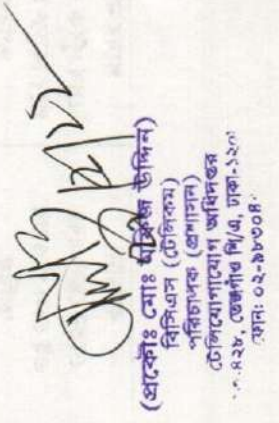 (প্রকৌঃ মোঃ উদ্দিন)
বিসিএস (টেলিকম)
পরিচালক (প্রশাসন)
টেলিযোগাযোগ অধিদপ্তর
৪২৮, তেজগাঁও শি/এ, ঢাকা-১২০
ফোন: ০২-৯৮৩০৪